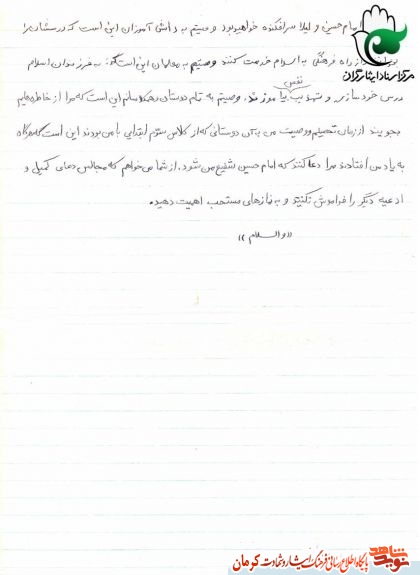 امام حسین و لیلا سرافکنده خواهید بود وصیتم به دانش آموزان این است که درسشان را
از راه فرهنگی به اسلام خدمت کنند وصیتم به معلمان این است که: به فرزندان اسلام
نفس
درس خودسازی و تهذیب بیاموزند. وصیتم به تمام دوستان و همکلاسانم این است که مرا از خاطره‌هایم
بجویند از زمان تحصیلم وصیت من به آن دوستانی که از کلاس سوم ابتدایی با من بودند این است که هرگاه
به یاد من افتادند مرا دعا کنند که امام حسین شفیع من شود. از شما می‌خواهم که مجالس دعای کمیل و
ادعیه دیگر را فراموش نکنید و به نمازهای مستحب اهمیت دهید.
((والسلام))
مرکز اسناد ایثارگران
نوید شاهد
پایگاه اطلاع رسانی فرهنگ ایثار و شهادت کرمان